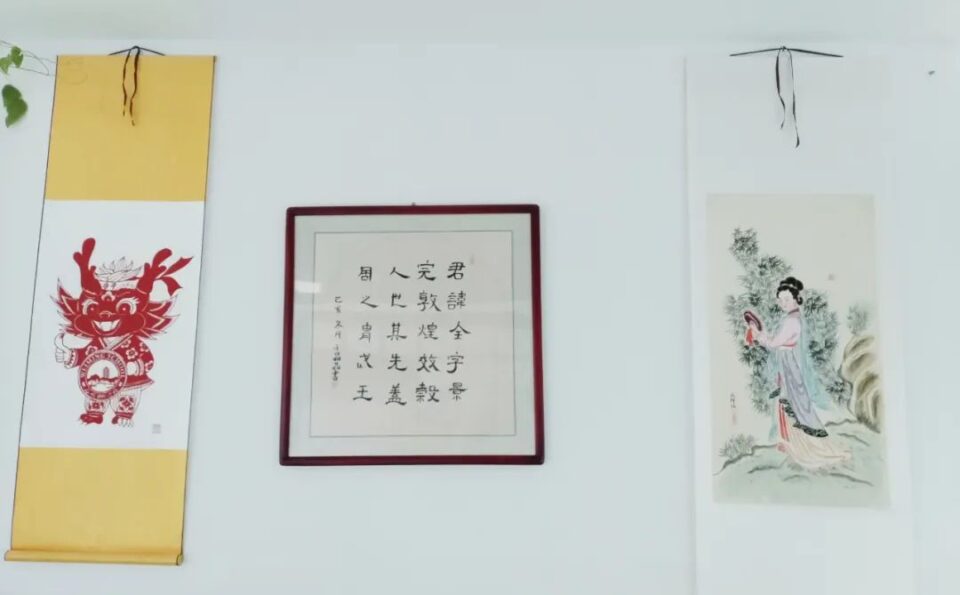 君諱全字景
完敦煌效穀
人也其先蓋
周之胄武王
己亥冬月